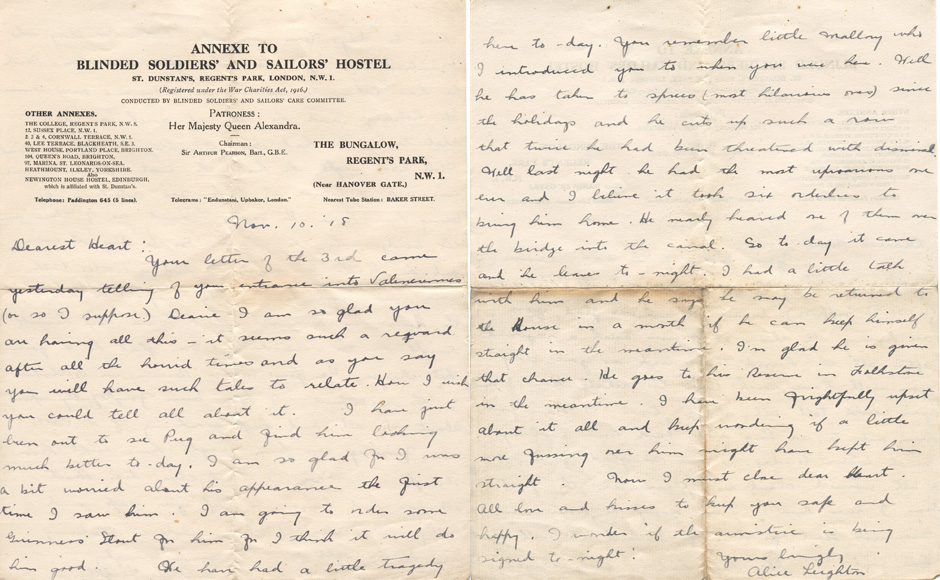 ANNEXE TO
BLINDED SOLDIERS' AND SAILORS' HOSTEL
ST. DUNSTAN'S, REGENT'S PARK, LONDON, N.W. 1.
(Registered under the War Charities Act, 1916.)
CONDUCTED BY BLINDED SOLDIERS' AND SAILORS' CARE COMMITTEE.
OTHER ANNEXES.
THE COLLEGE, REGENT'S PARK, N.W. 8.
12, SUSSEX PLACE, N.W. 1.
2, 3 & 4, CORNWALL TERRACE, N.W. 1.
40, LEE TERRACE, BLACKHEATH, S.E. 3.
WEST HOUSE, PORTLAND PLACE, BRIGHTON.
104, QUEEN'S ROAD, BRIGHTON.
97, MARINA, ST. LEONARDS-ON-SEA.
HEATHMOUNT, ILKLEY, YORKSHIRE.
Also
NEWINGTON HOUSE HOSTEL, EDINBURGH,
which is affiliated with St. Dunstan's.
PATRONESS:
Her Majesty Queen Alexandra.
Chairman:
SIR ARTHUR PEARSON, Bart., G.B.E.
THE BUNGALOW,
REGENT'S PARK,
N.W. 1.
(Near HANOVER GATE,)
Telephone: Paddington 645 (5 lines).
Telegrams: "Endunstani, Upbakor, London."
Nearest Tube Station: BAKER STREET.
Nov. 10. '18
Dearest Heart:
Your letter of the 3rd came
yesterday telling of your entrance into Valenciennes
(or so I suppose.) Dearie I am so glad you
are having all this - it seems such a reward
after all the horrid times and as you say
you will have such tales to relate. How I wish
you could tell all about it. I have just
been out to see Pug and find him looking
much better to-day. I am so glad for I was
a bit worried about his appearance the first
time I saw him. I am going to order some
Guinness' Stout for him for I think it will do
him good. We have had a little tragedy
here to-day. You remember little Mallory who
I introduced you to when you were here. Well
he has taken to sprees (most hilarious ones) since
the holidays and he cuts up such a row
that twice he had been threatened with dismissal.
Well last night he had the most uproarious one
ever and I believe it took six orderlies to
bring him home. He nearly heaved one of them over
the bridge into the canal. So to-day it came
and he leaves to-night. I had a little talk
with him and he says he may be returned to
the House in a month if he can keep himself
straight in the meantime. I'm glad he is given
that chance. He goes to his Reserve in Folkstone
in the meantime. I have been frightfully upset
about it all and keep wondering if a little
more fussing over him might have kept him
straight. Now I must close dear Heart.
All love and kisses to keep you safe and
happy. I wonder if the armistice is being
signed to-night!
Yours lovingly
Alice Leighton